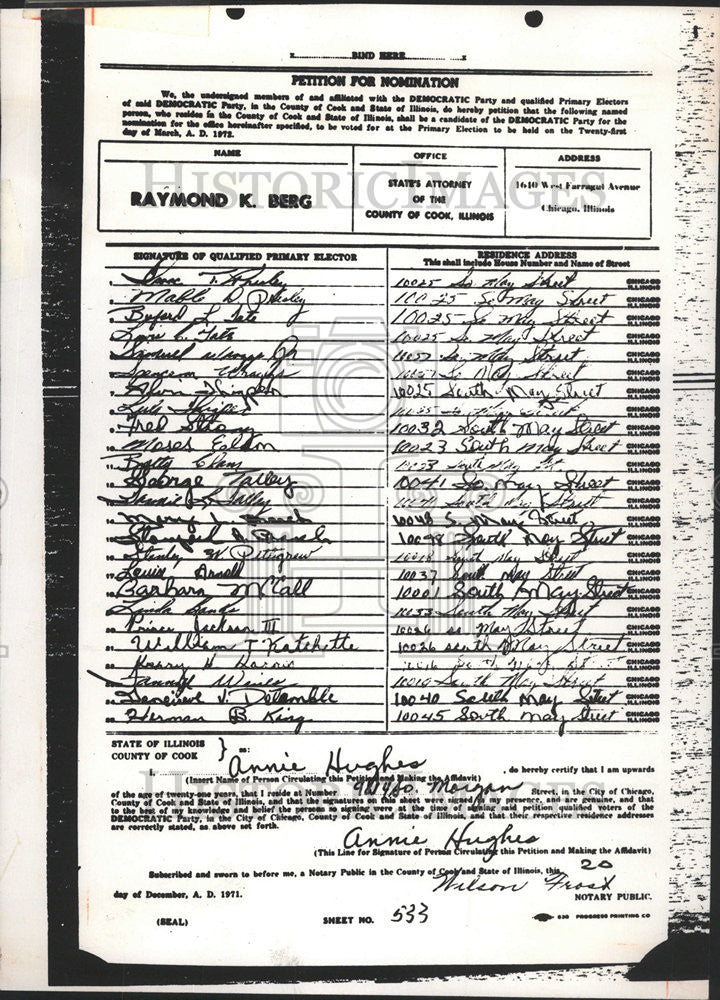 BIND HERE
PETITION FOR NOMINATION
We, the undersigned members of and affiliated with the DEMOCRATIC Party and qualified Primary Electors
of said DEMOCRATIC Party, in the County of Cook and State of Illinois, do hereby petition that the following named
person, who resides in the County of Cook and State of Illinois, shall be a candidate of the DEMOCRATIC Party for the
nomination for the office hereinafter specified, to be voted for at the Primary Election to be held on the Twenty-first
day of March, A. D. 1972.
NAME OFFICE ADDRESS
RAYMOND K. BERG STATE'S ATTORNEY OF THE COUNTY OF COOK, ILLINOIS 1640 West Farragut Avenue Chicago, Illinois
HISTORIC IMAGES
SIGNATURE OF QUALIFIED PRIMARY ELECTOR RESIDENCE ADDRESS
This shall include House Number and Name of Street
10025 So May Street CHICAGO ILLINOIS
Mable D. Presley 10025 So May Street CHICAGO ILLINOIS
Buford L. Tate 10025 So May Street CHICAGO ILLINOIS
Tate 10025 So May Street CHICAGO ILLINOIS
Samuel Jr 10057 So May Street CHICAGO ILLINOIS
So May Street CHICAGO ILLINOIS
Alvin Simpson 10025 South May Street CHICAGO ILLINOIS
So May CHICAGO ILLINOIS
Fred Strong 10032 South May Street CHICAGO ILLINOIS
Moses Easton 10023 South May Street CHICAGO ILLINOIS
Betty South May St CHICAGO ILLINOIS
George Talley 10041 So. May Street CHICAGO ILLINOIS
Talley South May Street CHICAGO ILLINOIS
10048 S. May Street CHICAGO ILLINOIS
10048 South May Street CHICAGO ILLINOIS
Stanley W Pettigrew South May Street CHICAGO ILLINOIS
Louis Arnold 10037 South May Street CHICAGO ILLINOIS
Barbara McCall 10001 South May Street CHICAGO ILLINOIS
Linda Banks 10033 South May Street CHICAGO ILLINOIS
Prince Jackson III 10026 So May Street CHICAGO ILLINOIS
William T Katchette 10026 South May Street CHICAGO ILLINOIS
Harry H. CHICAGO ILLINOIS
Wines South May Street CHICAGO ILLINOIS
Genevieve V. Detamble 10040 South May Street CHICAGO ILLINOIS
Herman B. King 10045 South May Street CHICAGO ILLINOIS
STATE OF ILLINOIS
COUNTY OF COOK } ss:
I, Annie Hughes, do hereby certify that I am upwards
(Insert Name of Person Circulating this Petition and Making the Affidavit)
of the age of twenty-one years, that I reside at Number So. Morgan Street, in the City of Chicago,
County of Cook and State of Illinois, and that the signatures on this sheet were signed in my presence, and are genuine, and that
to the best of my knowledge and belief the persons so signing were at the time of signing said petition qualified voters of the
DEMOCRATIC Party, in the City of Chicago, County of Cook and State of Illinois, and that their respective residence addresses
are correctly stated, as above set forth.
Annie Hughes
(This Line for Signature of Person Circulating this Petition and Making the Affidavit)
Subscribed and sworn to before me, a Notary Public in the County of Cook and State of Illinois, this 20
Wilson Frost
day of December, A. D. 1971. NOTARY PUBLIC.
(SEAL) SHEET NO. 533 530 PROGRESS PRINTING CO